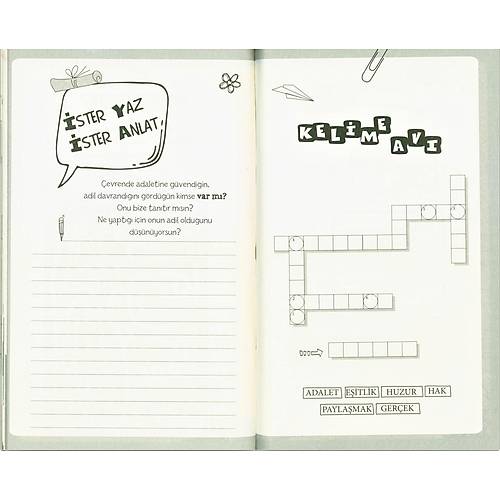 İSTER YAZ
İSTER ANLAT
Çevrende adaletine güvendiğin,
adil davrandığını gördüğün kimse var mı?
Onu bize tanıtır mısın?
Ne yaptığı için onun adil olduğunu
düşünüyorsun?
KELİME AVI
ADALET EŞİTLİK HUZUR HAK
PAYLAŞMAK GERÇEK